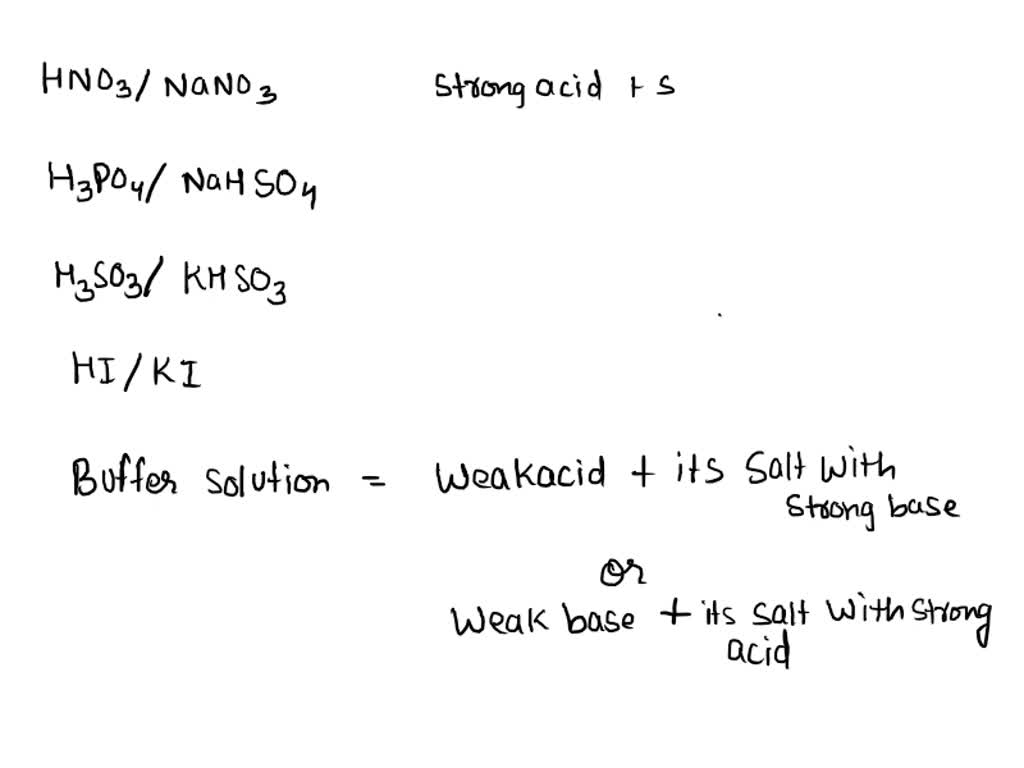 HNO3/ NaNO3 Strong acid + s
H3PO4/ NaHSO4
H3SO3/ KHSO3
HI/KI
Buffer solution = Weakacid + its Salt With
Strong base
or
Weak base + its salt With strong
acid